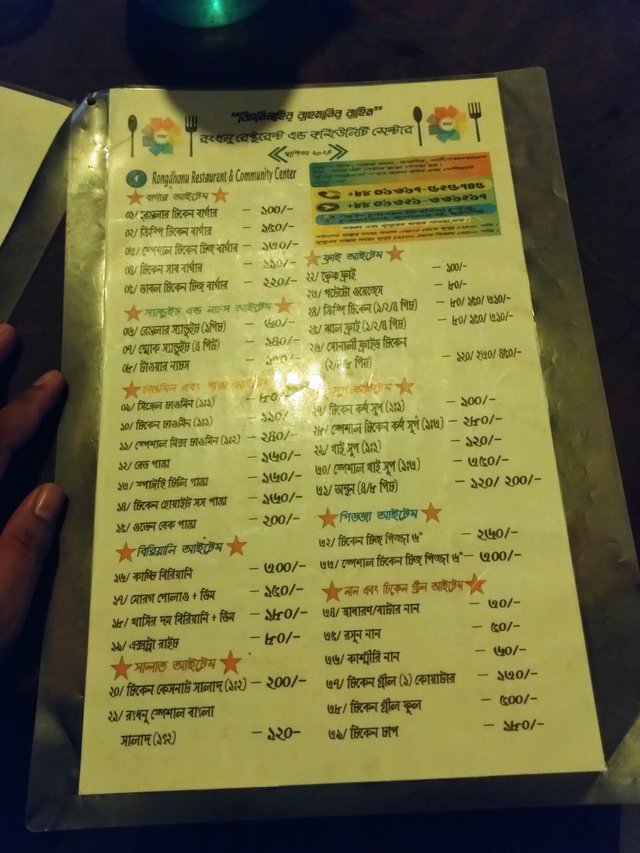 “বিসমিল্লাহির রাহমানির রাহিম”
রংধনু রেস্টুরেন্ট এন্ড কমিউনিটি সেন্টার
স্থাপিতঃ ২০২৪
Rongdhonu Restaurent & Community Center
বার্গার আইটেম
০১/ রেগুলার চিকেন বার্গার – ১০০/-
০২/ ক্রিস্পি চিকেন বার্গার – ১৫০/-
০৩/ স্পেশাল চিকেন চিজ বার্গার – ১৭০/-
০৪/ চিকেন সাব বার্গার
০৫/ ডাবল চিকেন চিজ বার্গার – ২২০/-
স্যান্ডুইচ এন্ড নাচস আইটেম
০৬/ রেগুলার স্যান্ডুইচ (১পিচ) – ৬০/-
০৭/ স্মোক স্যান্ডুইচ (৪ পিচ) – ১৪০/-
০৮/ টাওয়ার নাচস
চাওমিন এবং পাস্তা আইটেম
০৯/ সিম্পেল চাওমিন (১ঃ২) – ৮০/-
১০/ চিকেন চাওমিন (১ঃ২) – ১১০/-
১১/ স্পেশাল মিক্স চাওমিন (১ঃ২) – ২৪০/-
১২/ রেড পাস্তা – ১৬০/-
১৩/ স্পাইসি চিলি পাস্তা – ১৬০/-
১৪/ চিকেন হোয়াইট সস পাস্তা – ১৬০/-
১৫/ ওভেন বেক পাস্তা – ২০০/-
বিরিয়ানি আইটেম
১৬/ কাচ্চি বিরিয়ানি – ৩০০/-
১৭/ মোরগ পোলাও + ডিম – ১৫০/-
১৮/ খাসির দম বিরিয়ানি + ডিম – ১৮০/-
১৯/ এক্সট্রা রাইচ – ৮০/-
সালাত আইটেম
২০/ চিকেন কেসনাট সালাদ (১ঃ২) – ২০০/-
২১/ রংধনু স্পেশাল বাংলা
সালাদ (১ঃ২) – ১২০-
+৮৮ ০১৩১৭-৬২৬৭৪৬
+৮৮ ০১৩২১-৩৩১২১৭
ফ্রাই আইটেম
২২/ ফ্রেঞ্চ ফ্রাই – ১০০/-
২৩/ পটেটো ওয়েজেস – ৮০/-
২৪/ ক্রিস্পি চিকেন (১/২/৪ পিচ) – ৮০/ ১৫০/ ৩১০/-
২৫/ ঝাল ফ্রাই (১/২/৪ পিচ) – ৮০/ ১৫০/ ৩১০/-
২৬/ সোনালী ফ্রাইড চিকেন
(২/৪/৮ পিচ) – ১২০/ ২৩০/ ৪৫০/-
সুপ আইটেম
২৭/ চিকেন কর্ন সুপ (১ঃ১) – ১০০/-
২৮/ স্পেশাল চিকেন কর্ন সুপ (১ঃ৩) – ২৮০/-
২৯/ থাই সুপ (১ঃ১) – ১২০/-
৩০/ স্পেশাল থাই সুপ (১ঃ৩) – ৩৫০/-
৩১/ অন্থন (৪/৮ পিচ) – ১২০/ ২০০/-
পিজ্জা আইটেম
৩২/ চিকেন চিজ পিজ্জা ৬" – ২৬০/-
৩৩/ স্পেশাল চিকেন চিজ পিজ্জা ৬" – ৩০০/-
নান এবং চিকেন গ্রীল আইটেম
৩৪/ সাধারণ/বাটার নান – ৩০/-
৩৫/ রসুন নান – ৫০/-
৩৬/ কাশ্মীরি নান – ৬০/-
৩৭/ চিকেন গ্রীল (১) কোয়াটার – ১৩০/-
৩৮/ চিকেন গ্রীল ফুল – ৫০০/-
৩৯/ চিকেন চাপ – ১৮০/-